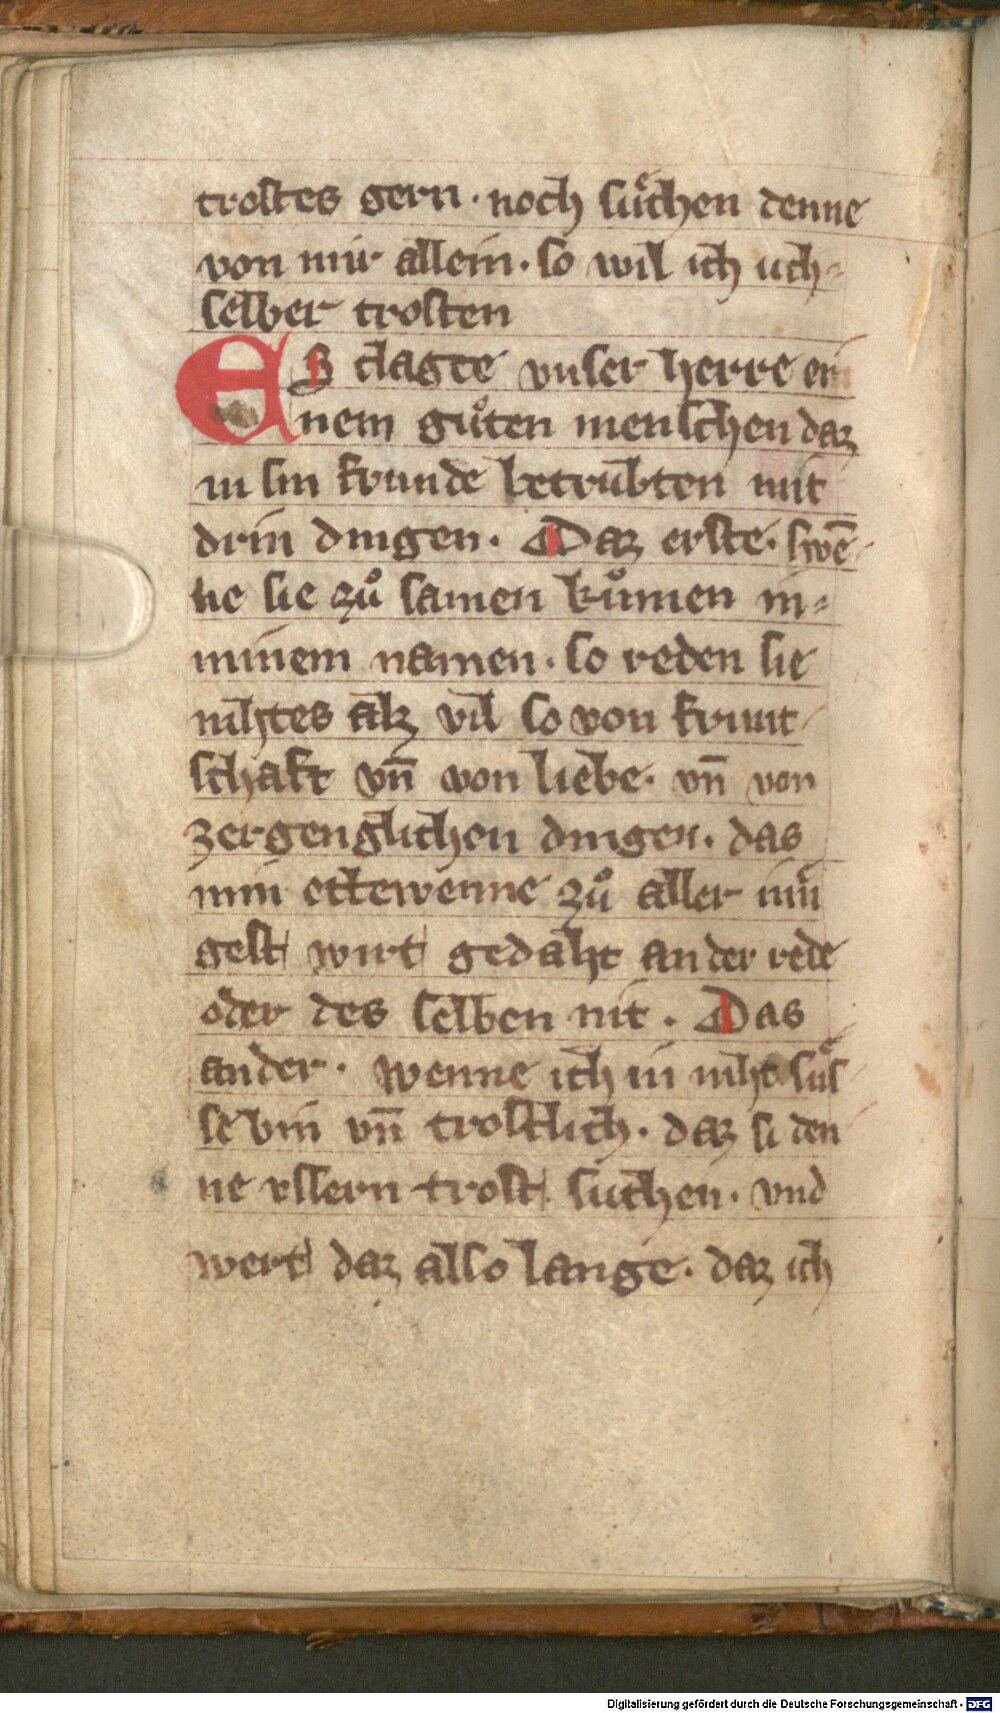 trostes gern · noch sůͤchen denne
von mir allein · so wil ich uch-
selber trosten
ES clagte vnser herre ei
nem gůten menschen daz
in sin frunde betrubten mit
drin dingen · Daz erste · swē-
ne sie zů samen kůmen in-
minem namen · so reden sie
nihtes alz vil so von frunt-
schaft vn̄ von liebe · vn̄ von
zergenglichen dingen · das
min ettewenne zů aller mī
gest wirt gedaht an der rede
oder des selben nit · Das
ander · wenne ich in niht sůͤs
se bin vn̄ trostlich · daz si den
ne vssern trost suchen · vnd
wert daz also lange · daz ich
Digitalisierung gefördert durch die Deutsche Forschungsgemeinschaft - DFG